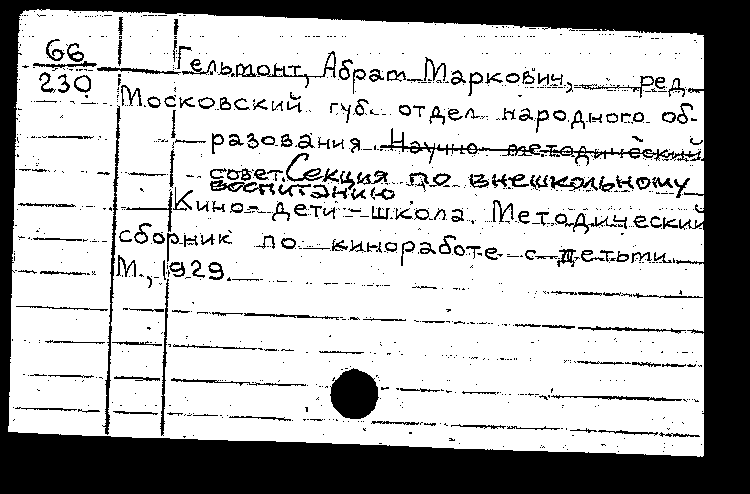 66
230
Гельмонт, Абрам Маркович, ред.
Московский губ. отдел народного об-
разования. Научно-методический
совет. Секция по внешкольному
воспитанию
Кино-дети-школа. Методический
сборник по киноработе с детьми.
М., 1929.